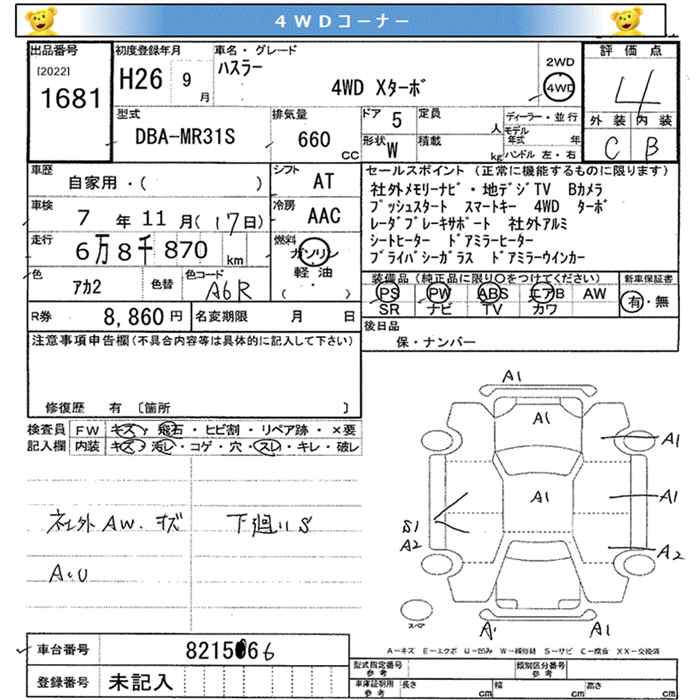 4WDコーナー
出品番号
[2022]
1681
初度登録年月
H26 9月
車名・グレード
ハスラー
4WD Xターボ
2WD
4WD
評価点
4
外装 内装
C B
型式
DBA-MR31S
排気量
660 CC
ドア 5
形状 W
定員 人
積載 kg
ディーラー・並行
モデル年式 年
ハンドル 左・右
車歴
自家用・( )
車検
7年11月(17日)
走行
6万8千870 km
色
アカ2
色替
色コード
A6R
シフト
AT
冷房
AAC
燃料
ガソリン
軽油
( ・ )
セールスポイント(正常に機能するものに限ります)
社外メモリーナビ・地デジTV Bカメラ
プッシュスタート スマートキー 4WD ターボ
レーダブレーキサポート 社外アルミ
シートヒーター ドアミラーヒーター
プライバシーガラス ドアミラーウインカー
装備品(純正品に限り○をつけてください)
PS PW ABS エアB AW
SR ナビ TV カワ
新車保証書
有・無
R券 8,860円
名変期限 月 日
後日品
保・ナンバー
注意事項申告欄(不具合内容等は具体的に記入して下さい)
修復歴 有 〔箇所 〕
検査員 FW キズ・飛石・ヒビ割・リペア跡・×要
記入欄 内装 キズ・汚レ・コゲ・穴・スレ・キレ・破レ
社外AW.キズ
下廻りS
A.U
A1
A1
A1
A1
A1
S1
A2
A2
スペア
A1
A-キズ E-エクボ U-凹み W-補修跡 S-サビ C-腐食 XX-交換済
車台番号
登録番号 未記入
型式指定番号 参考
類別区分番号 参考
車庫証明用 参考 長さ cm 幅 cm 高さ cm